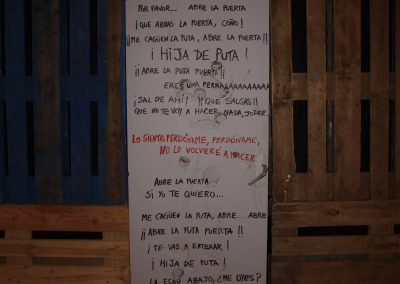 POR FAVOR... ABRE LA PUERTA
¡QUE ABRAS LA PUERTA, COÑO!
¡¡ME CAGÜEN LA PUTA, ABRE LA PUERTA!!
¡HIJA DE PUTA!
¡¡ABRE LA PUTA PUERTA!!
ERES UNA PERRAAAAAAAAAAA
¡SAL DE AHÍ! ¡¡QUE SALGAS!!
QUE NO TE VOY A HACER NADA, JODER.
LO SIENTO, PERDÓNAME, PERDÓNAME,
NO LO VOLVERÉ A HACER
ABRE LA PUERTA
SI YO TE QUIERO...
ME CAGÜEN LA PUTA, ABRE... ABRE
¡¡ABRE LA PUTA PUERTA!!
¡TE VAS A ENTERAR!
¡HIJA DE PUTA!
LA ESTOY ABAJO, ¿ME OYES?